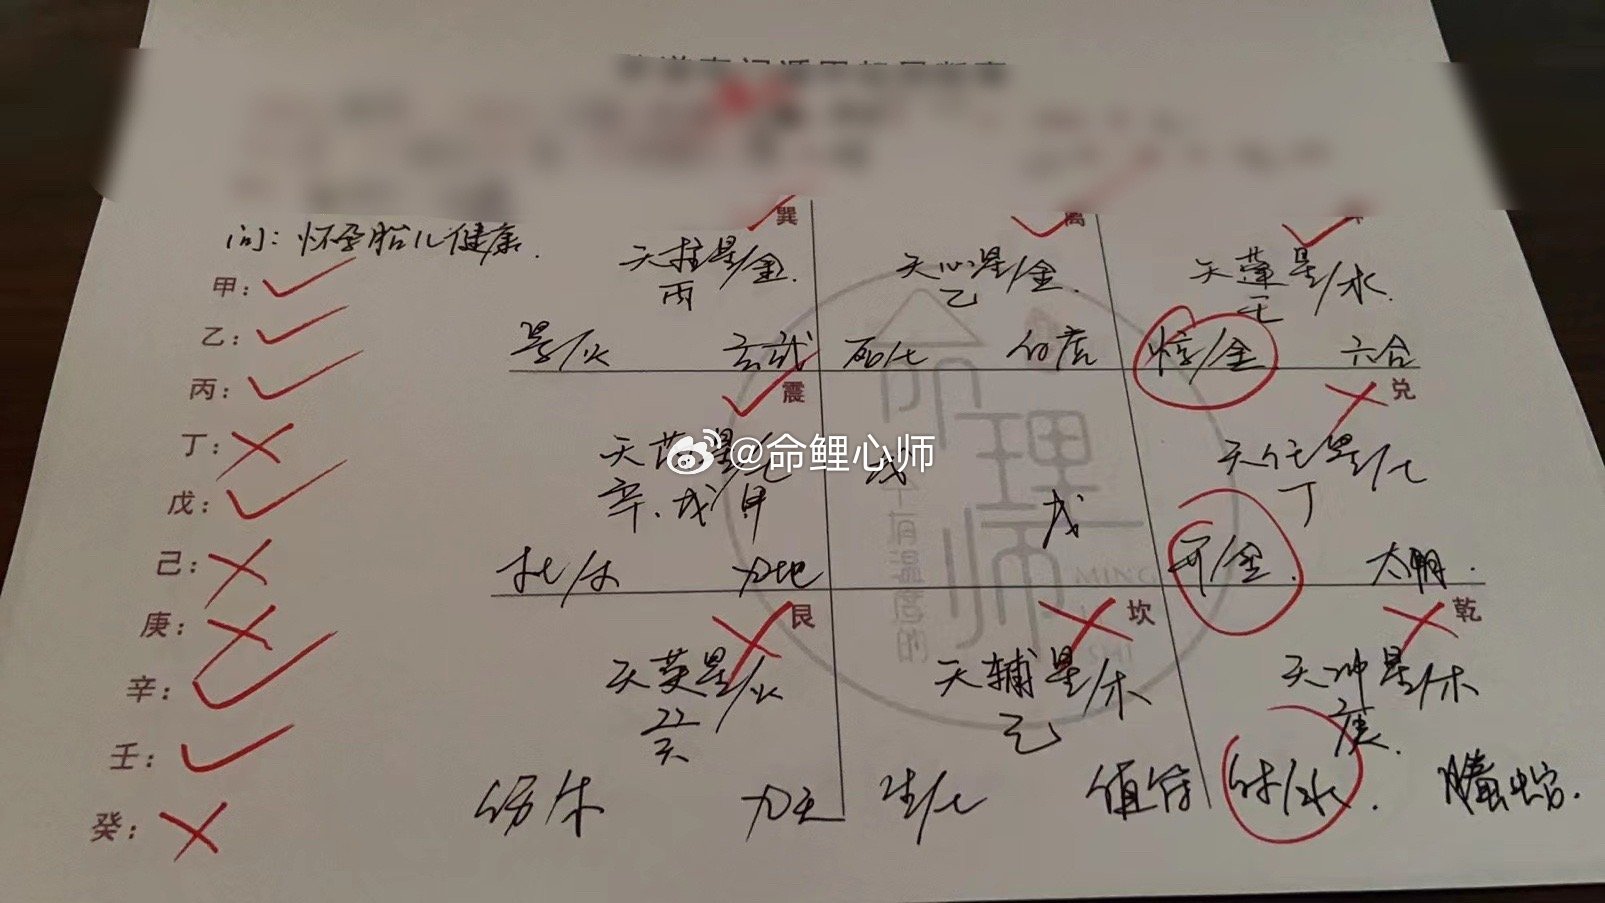 巽 离
问：怀孕胎儿健康.
天柱星/金. 天心星/金. 天蓬星/水.
甲： 丙 乙 壬
乙： 景/火 玄武 死/土 白虎 惊/金 六合
丙： 震 兑
丁： 天芮星/土 戊 天任星/土
@命鲤心师
戊： 辛.戊 甲 戊 丁
命理师
个有温度的
MING
SHI
己： 杜/木 九地 开/金. 太阴.
庚： 艮 坎 乾
辛： 天英星/火 天辅星/木 天冲星/木
壬： 癸 己 庚.
癸： 伤/木 九天 生/土 值符 休/水. 螣蛇.